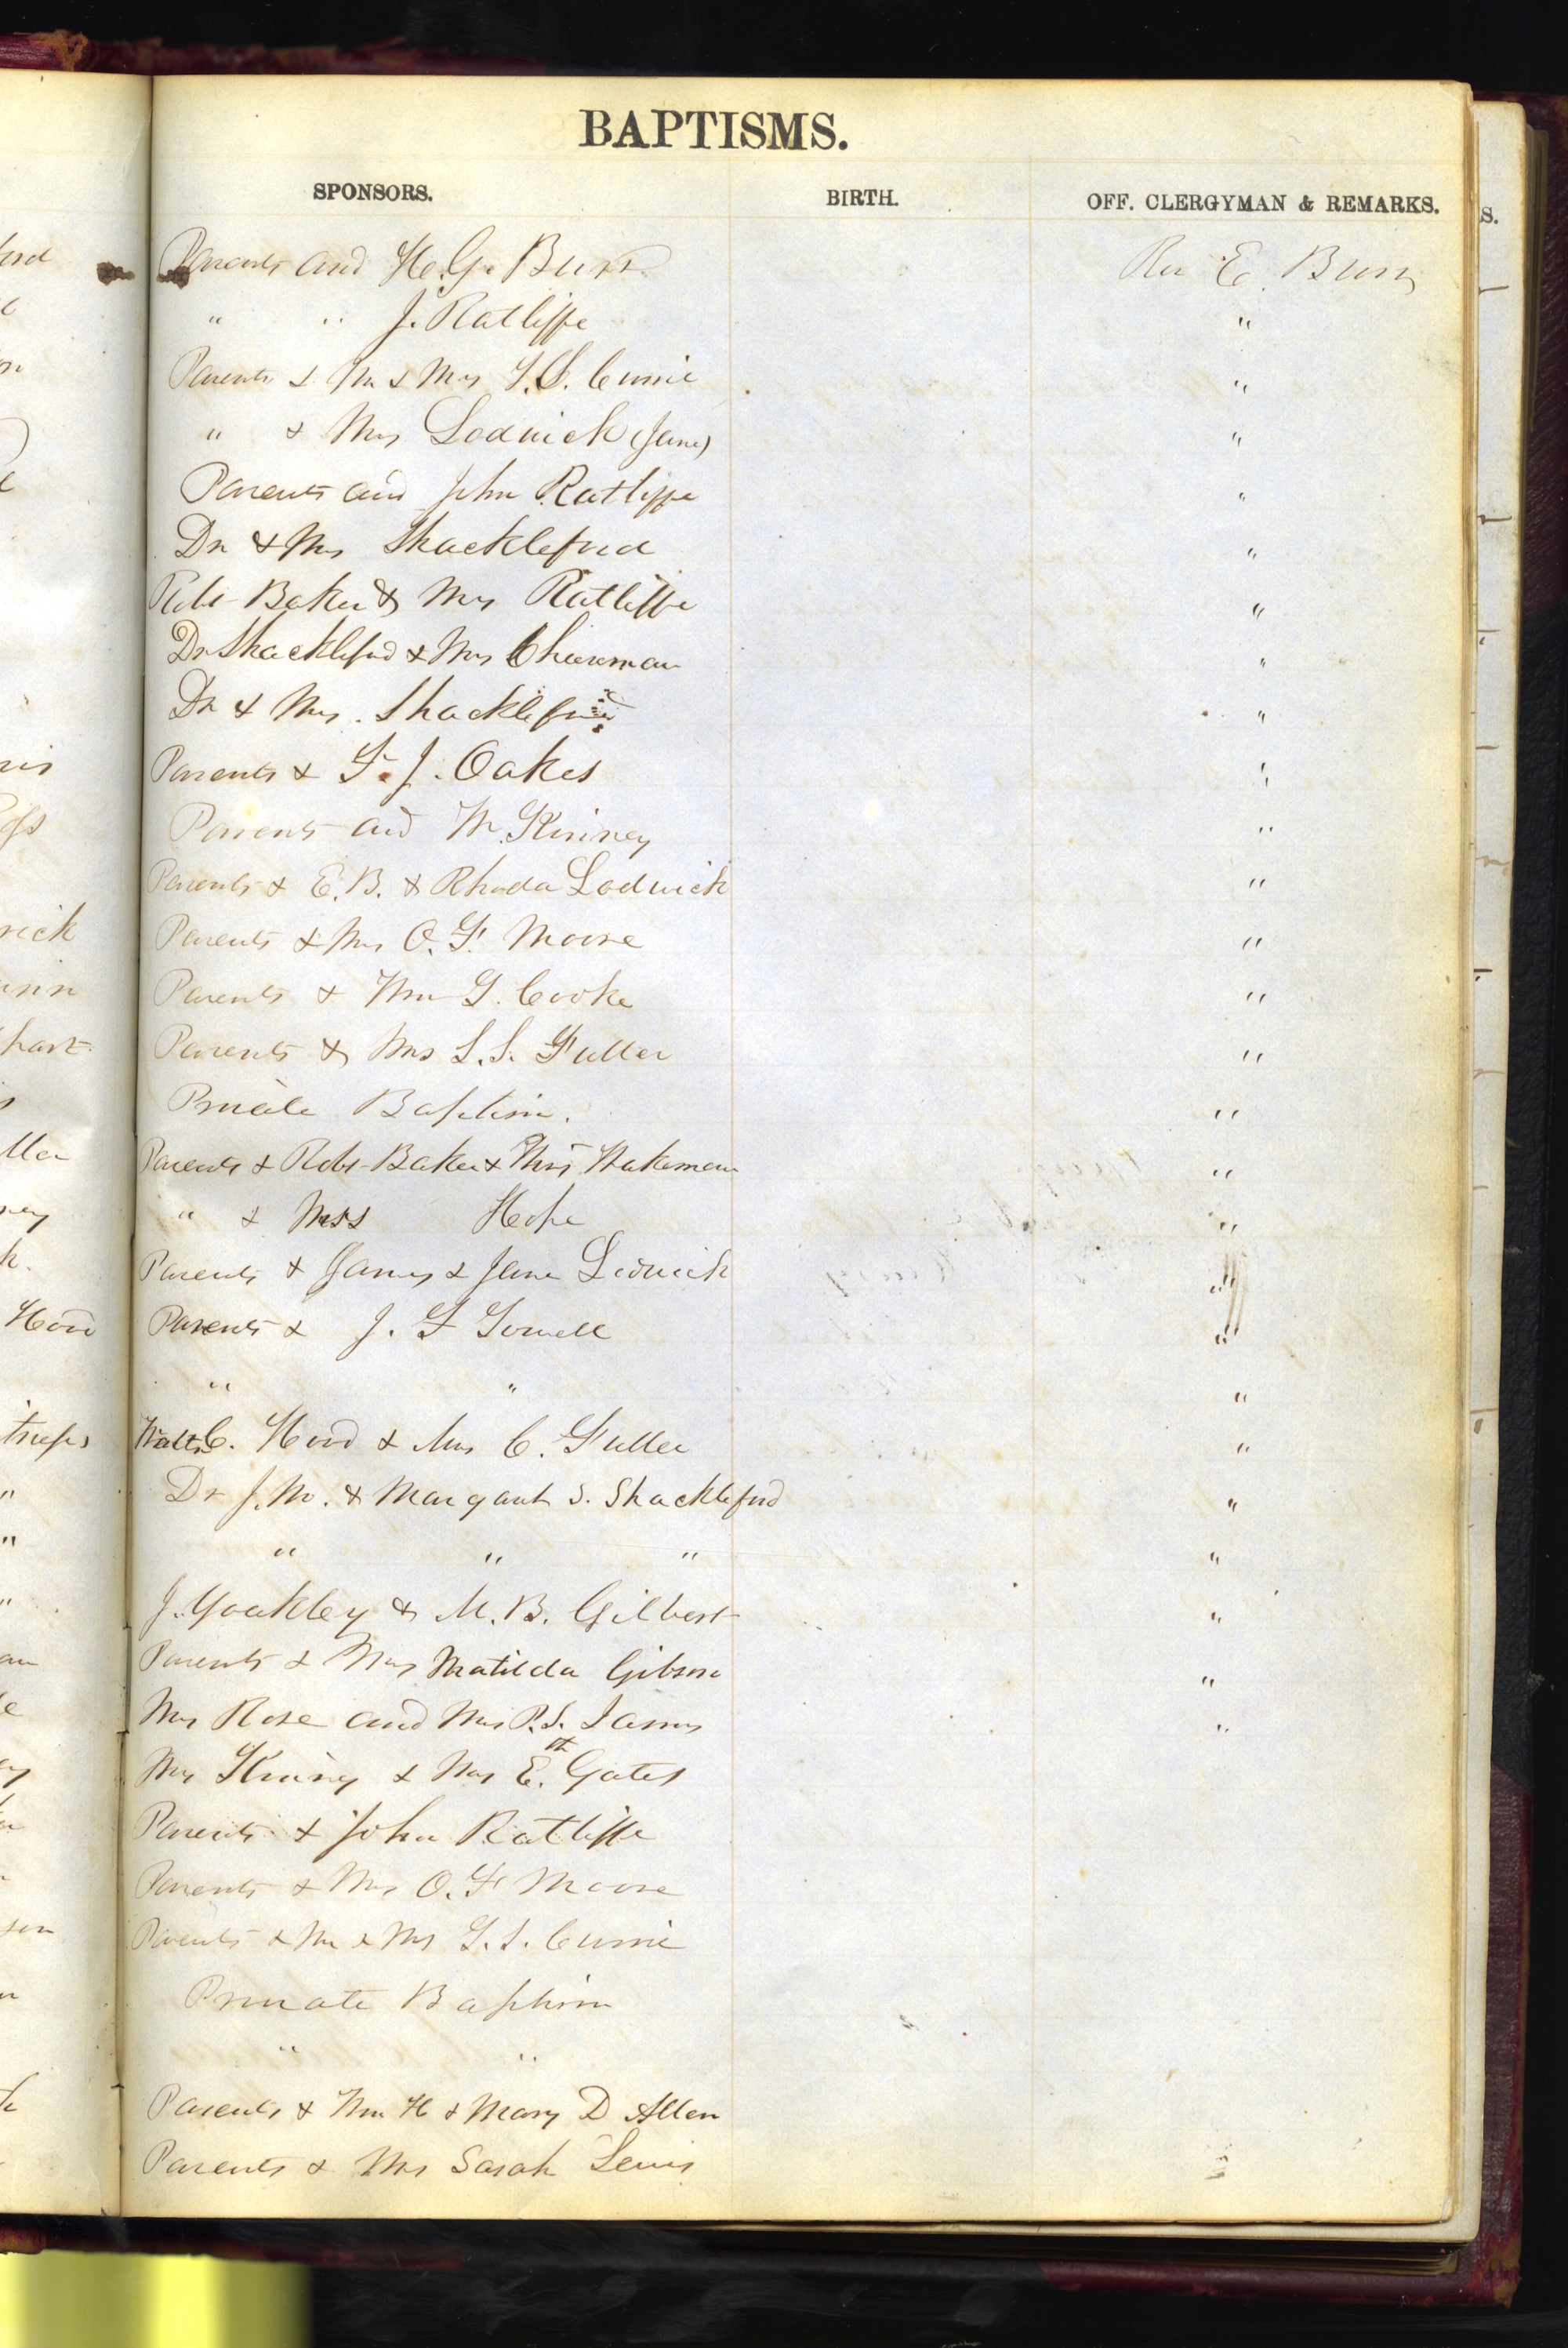 BAPTISMS.
SPONSORS. BIRTH. OFF. CLERGYMAN & REMARKS.
Parents and H. G. Burr Rev E. Burr
" " J. Ratliffe "
Parents & Mr & Mrs Currie "
" & Mrs Lodwick (Jane) "
Parents and John Ratliffe "
Dr & Mrs Shackleford "
Robt Baker & Mrs Ratliffe "
Dr Shackleford & Mrs "
Dr & Mrs. Shackleford "
Parents & F. J. Oakes "
Parents and Kinney "
Parents & E. B. & Rhoda Lodwick "
Parents & Mrs O. F. Moore "
Parents & Wm G. Cooke "
Parents & Mrs S. S. Fuller "
Private Baptism. "
Parents & Robt Baker & Wakeman "
" & Miss Hope "
Parents & James & Jane Lodwick "
Parents & J. F "
" " "
C. Hood & Mrs C. Fuller "
Dr J. M. & Margaret S. Shackleford "
" " " "
J. Yoakley & M. B. Gilbert "
Parents & Mrs Matilda Gibson "
Mrs Rose and Mrs P. S. Iams "
Mrs Kinney & Mrs Eth. Gates
Parents & John Ratliffe
Parents & Mrs O. F. Moore
Parents & Mr & Mrs Currie
Private Baptism
" "
Parents & Wm H & Mary D Allen
Parents & Mrs Sarah Lewis